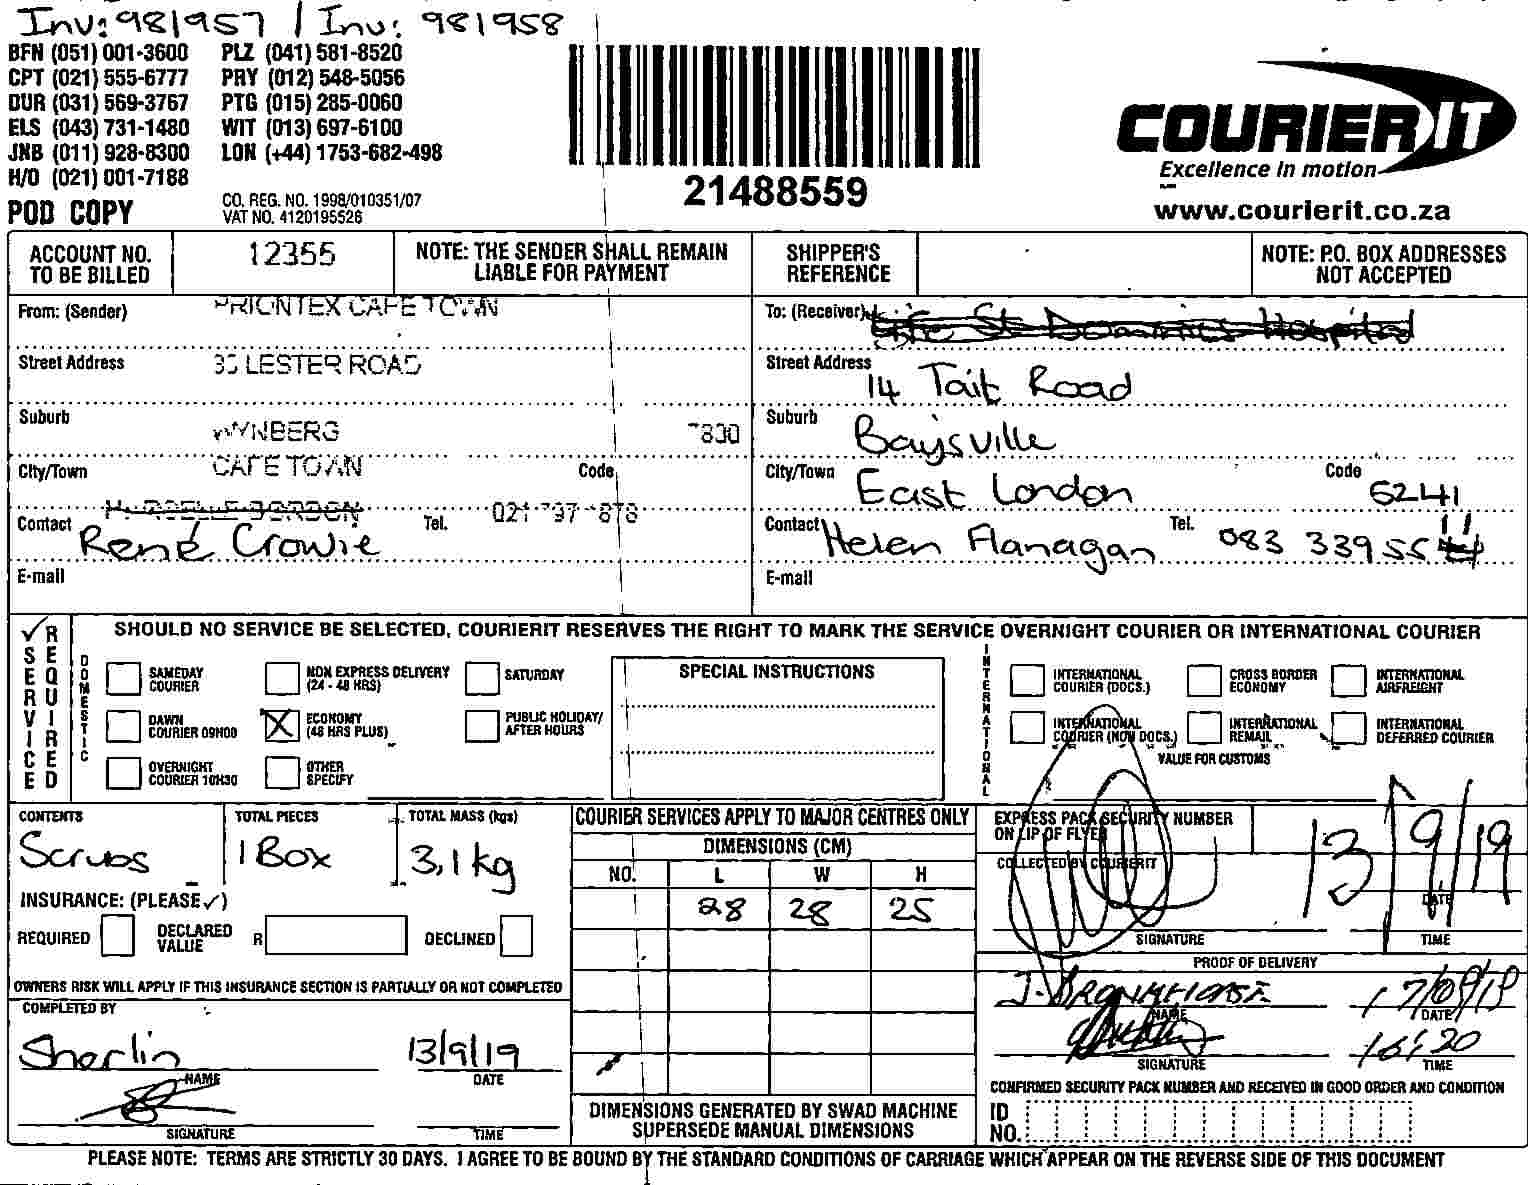 Inv: 981957 / Inv: 981958
BFN (051) 001-3600 PLZ (041) 581-8520
CPT (021) 555-6777 PRY (012) 548-5056
DUR (031) 569-3767 PTG (015) 285-0060
ELS (043) 731-1480 WIT (013) 697-6100
JNB (011) 928-8300 LON (+44) 1753-682-498
H/O (021) 001-7188
POD COPY
CO. REG. NO. 1998/010351/07
VAT NO. 4120195526
21488559
COURIER IT
Excellence in motion
www.courierit.co.za
ACCOUNT NO. TO BE BILLED 12355
NOTE: THE SENDER SHALL REMAIN LIABLE FOR PAYMENT
SHIPPER'S REFERENCE
NOTE: P.O. BOX ADDRESSES NOT ACCEPTED
From: (Sender) PRIONTEX CAPE TOWN
Street Address LESTER ROAD
Suburb WYNBERG 7800
City/Town CAPE TOWN Code
Contact René Crowie Tel. 021
E-mail
To: (Receiver) Life St Dominics Hospital
Street Address 14 Tait Road
Suburb Baysville
City/Town East London Code 5241
Contact Helen Flanagan Tel. 083 339 55 11
E-mail
✓ SERVICE REQUIRED
SHOULD NO SERVICE BE SELECTED, COURIERIT RESERVES THE RIGHT TO MARK THE SERVICE OVERNIGHT COURIER OR INTERNATIONAL COURIER
DOMESTIC
SAMEDAY COURIER
NON EXPRESS DELIVERY (24 - 48 HRS)
SATURDAY
DAWN COURIER 09H00
X ECONOMY (48 HRS PLUS)
PUBLIC HOLIDAY/ AFTER HOURS
OVERNIGHT COURIER 10H30
OTHER SPECIFY
SPECIAL INSTRUCTIONS
INTERNATIONAL
INTERNATIONAL COURIER (DOCS.)
CROSS BORDER ECONOMY
INTERNATIONAL AIRFREIGHT
INTERNATIONAL COURIER (NON DOCS.)
INTERNATIONAL REMAIL
INTERNATIONAL DEFERRED COURIER
VALUE FOR CUSTOMS
CONTENTS Scrubs
TOTAL PIECES 1 Box
TOTAL MASS (kgs) 3,1 kg
INSURANCE: (PLEASE ✓)
REQUIRED DECLARED VALUE R DECLINED
OWNERS RISK WILL APPLY IF THIS INSURANCE SECTION IS PARTIALLY OR NOT COMPLETED
COMPLETED BY
Sherlin 13/9/19
NAME DATE
SIGNATURE TIME
COURIER SERVICES APPLY TO MAJOR CENTRES ONLY
DIMENSIONS (CM)
NO. L W H
28 28 25
DIMENSIONS GENERATED BY SWAD MACHINE SUPERSEDE MANUAL DIMENSIONS
EXPRESS PACK SECURITY NUMBER ON LIP OF FLYER
COLLECTED BY COURIERIT
13/9/19
DATE
SIGNATURE TIME
PROOF OF DELIVERY
17/09/19
NAME DATE
16:20
SIGNATURE TIME
CONFIRMED SECURITY PACK NUMBER AND RECEIVED IN GOOD ORDER AND CONDITION
ID NO.
PLEASE NOTE: TERMS ARE STRICTLY 30 DAYS. I AGREE TO BE BOUND BY THE STANDARD CONDITIONS OF CARRIAGE WHICH APPEAR ON THE REVERSE SIDE OF THIS DOCUMENT